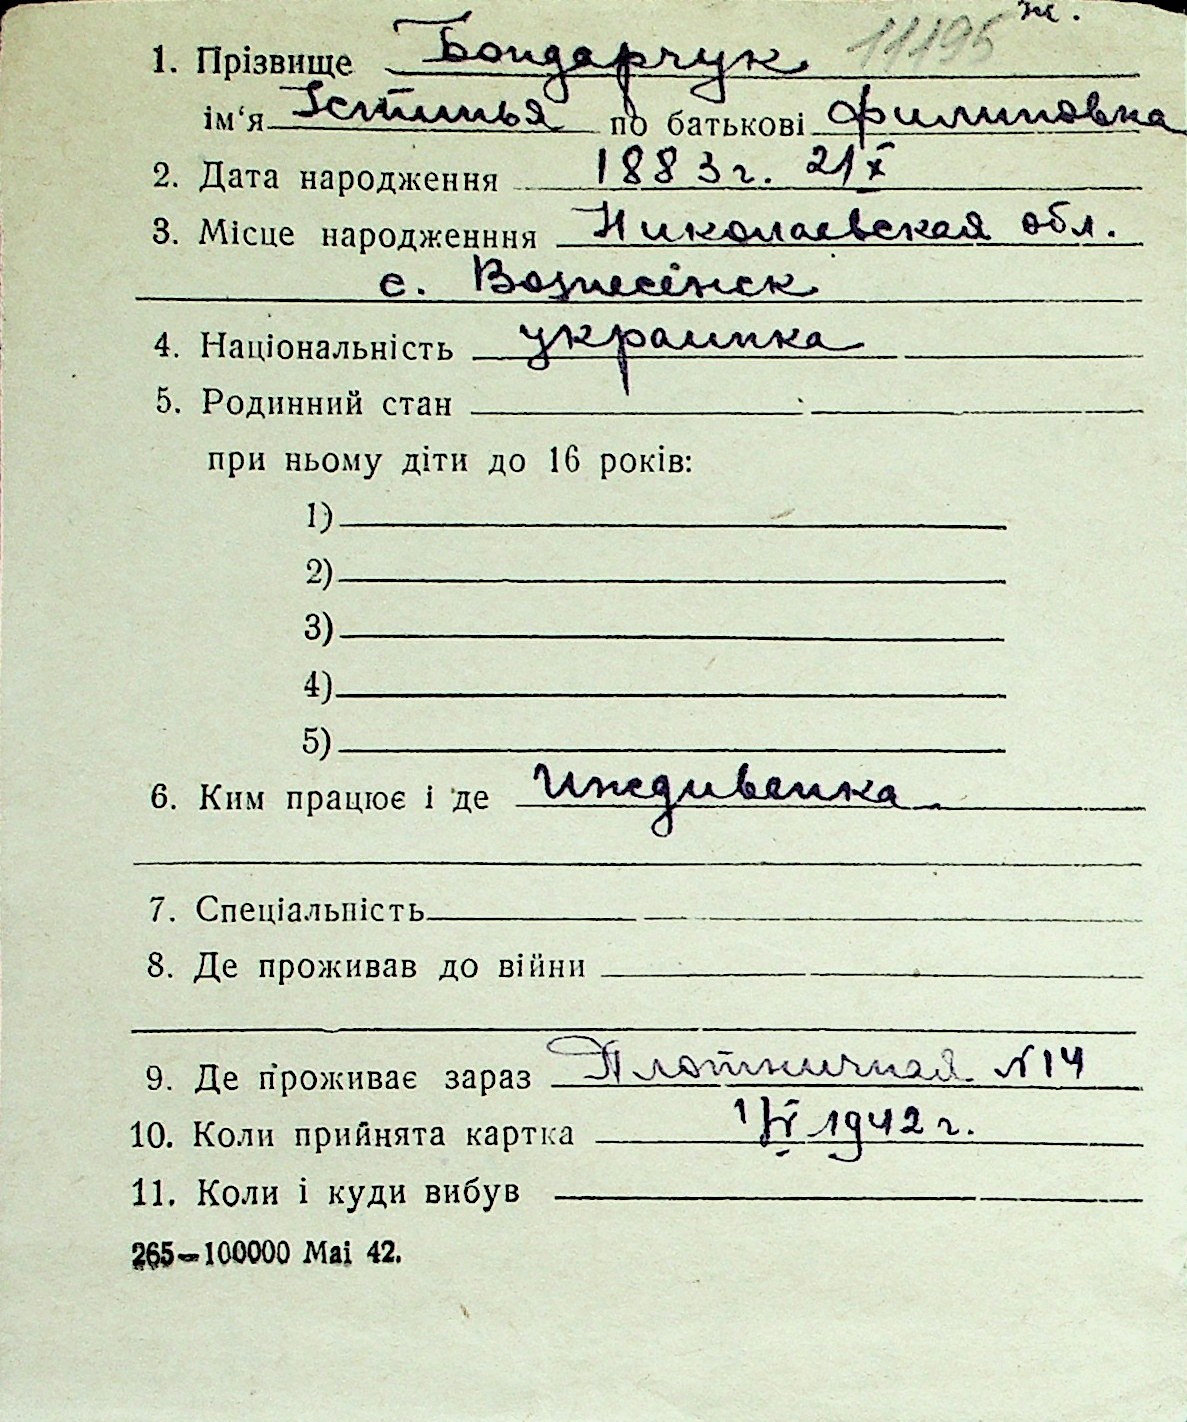 ж.
11195
1. Прізвище Бондарчук
ім‘я Устинья по батькові Филиповна
2. Дата народження 1883 г. 21 X
3. Місце народженння Николаевская обл.
с. Вознесенск
4. Національність украинка
5. Родинний стан
при ньому діти до 16 років:
1)
2)
3)
4)
5)
6. Ким працює і де Иждивенка
7. Спеціальність
8. Де проживав до війни
9. Де проживає зараз Плотничная № 14
10. Коли прийнята картка 1/VI 1942 г.
11. Коли і куди вибув
265—100000 Mai 42.